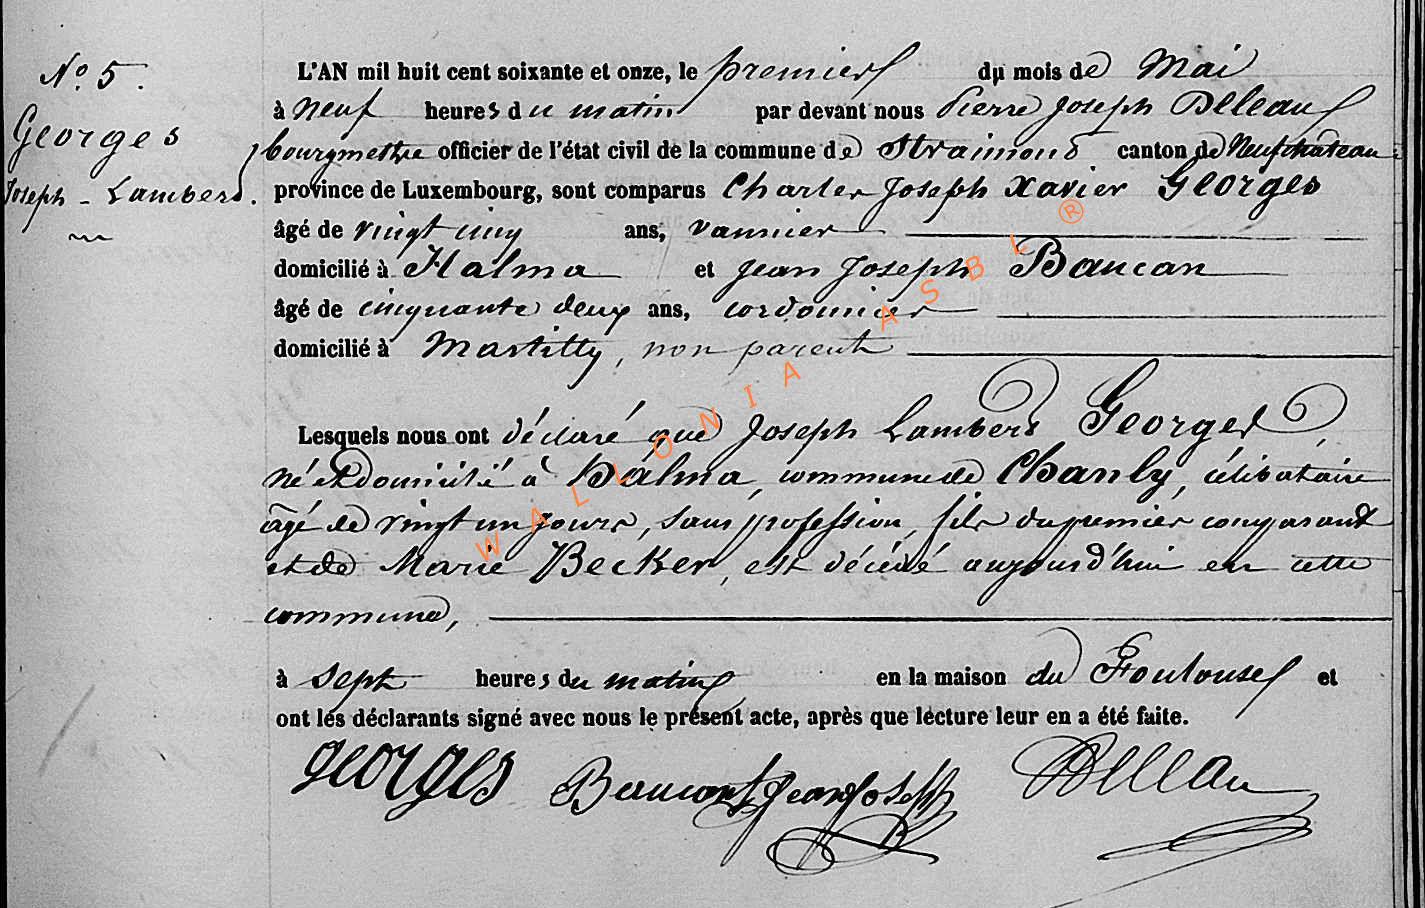 N° 5.
Georges
Joseph - Lambert.
L'AN mil huit cent soixante et onze, le premier du mois de Mai
à neuf heures du matin par devant nous Pierre Joseph Deleau
bourgmestre officier de l'état civil de la commune de Straimont canton de Neufchâteau
province de Luxembourg, sont comparus Charles Joseph Xavier Georges
âgé de vingt cinq ans, vannier
domicilié à Halma et Jean Joseph Baucan
âgé de cinquante deux ans, cordonnier
domicilié à Martilly, non parent
Lesquels nous ont déclaré que Joseph Lambert Georges,
né et domicilié à Halma, commune de Chanly, célibataire
âgé de vingt un jours, sans profession, fils du premier comparant
et de Marie Becker, est décédé aujourd'hui en cette
commune,
à sept heures du matin en la maison du et
ont les déclarants signé avec nous le présent acte, après que lecture leur en a été faite.
Georges Jean Joseph Delleau
WALLONIA ASBL ®